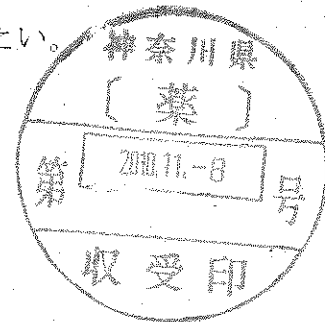 たい。
神奈川県
〔薬〕
2010.11.-8
第　号
収受印